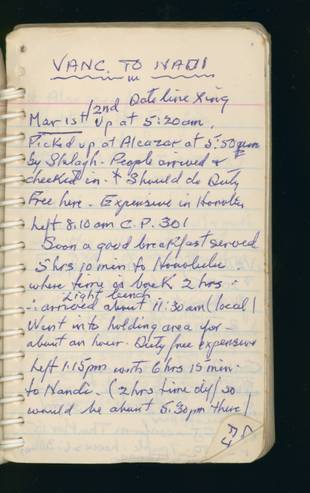 VANC. TO NADI
/2nd Date line Xing
Mar 1st Up at 5:20am.
Picked up at Alcazar at 5:50am
by Shlagh - People arrived &
checked in. * Should do Duty
Free here - Expensive in Honolulu
Left 8:10am C.P. 301
Soon a good breakfast served
5 hrs 10 min. to Honolulu
where time is back 2 hrs.
Light lunch
∴ arrived about 11:30am (local)
Went into holding area for
about an hour. Duty free expensive
Left 1:15pm with 6 hrs 15 min.
to Nandi - (2 hrs time dif) so
would be about 5:30pm there)